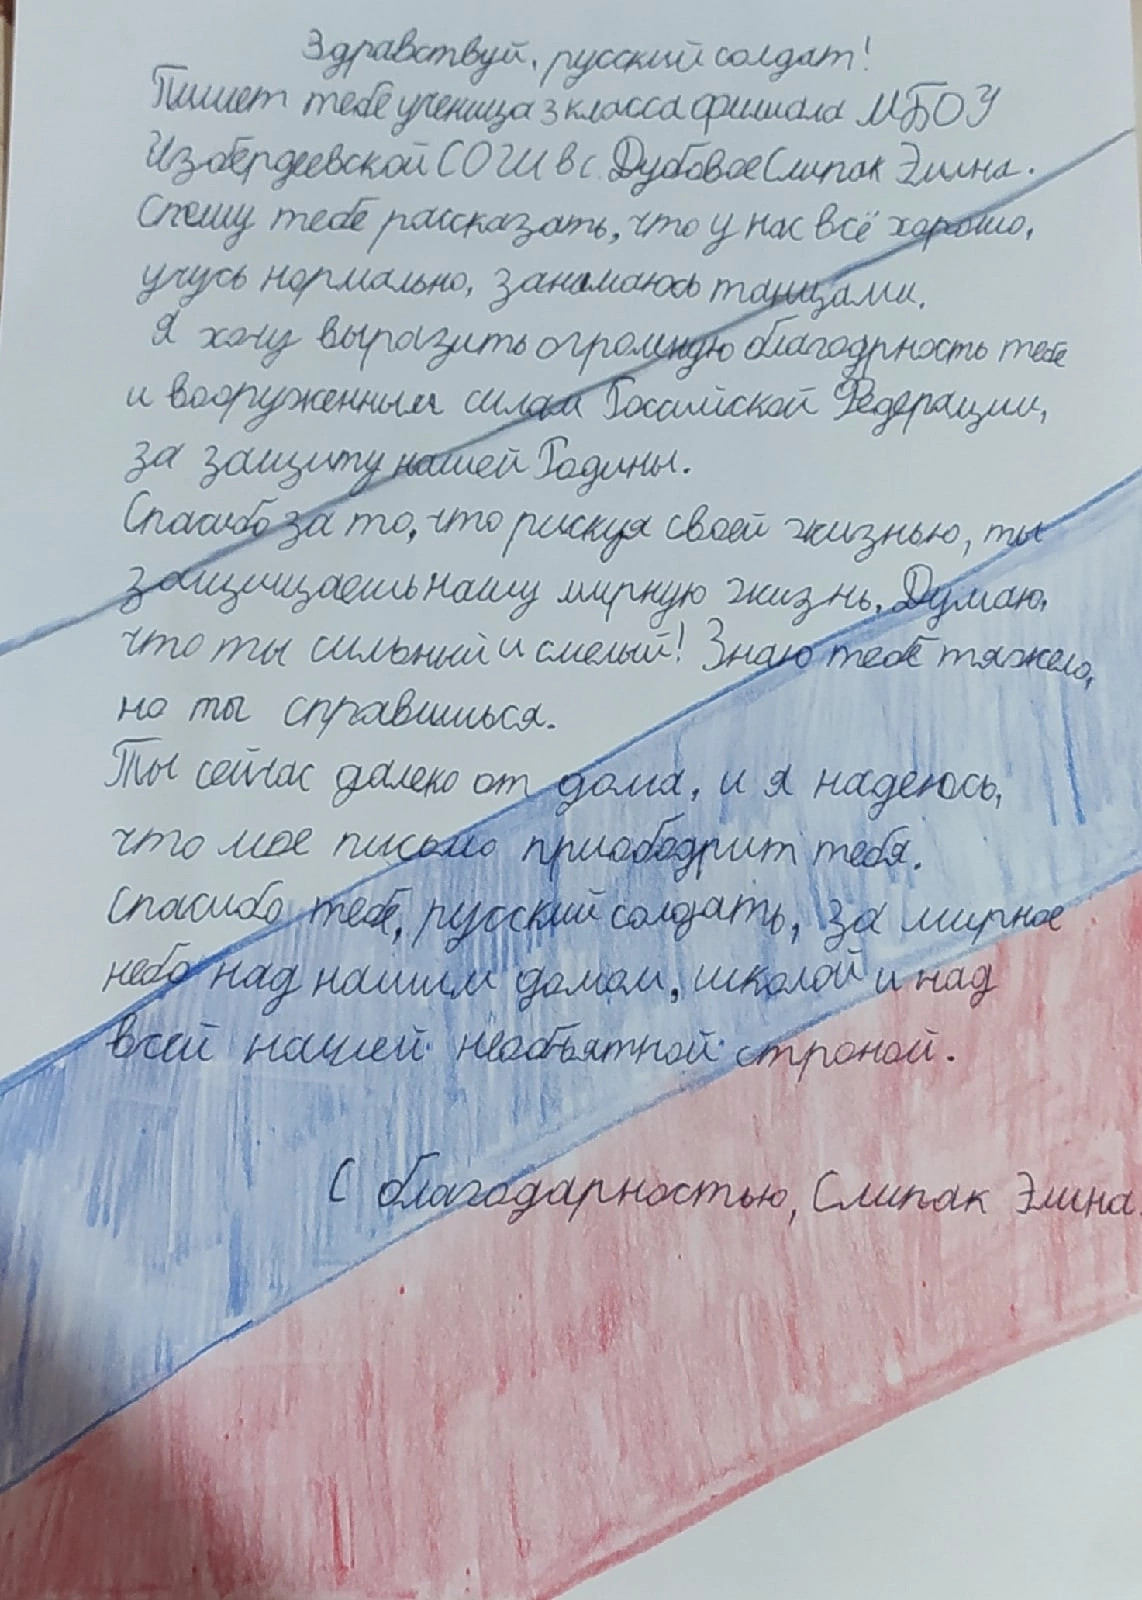 Здравствуй, русский солдат!
Пишет тебе ученица 3 класса филиала МБОУ
Избердеевской СОШ в с. Дубовое Слипак Элина.
Спешу тебе рассказать, что у нас всё хорошо,
учусь нормально, занимаюсь танцами.
Я хочу выразить огромную благодрность тебе
и вооруженным силам Российской Федерации,
за защиту нашей Родины.
Спасибо за то, что рискуя своей жизнью, ты
защищаешь нашу мирную жизнь. Думаю,
что ты сильный и смелый! Знаю тебе тяжело,
но ты справишься.
Ты сейчас далеко от дома, и я надеюсь,
что мое письмо приободрит тебя.
Спасибо тебе, русский солдать, за мирное
небо над нашим домом, школой и над
всей нашей необъятной строной.
С благодарностью, Слипак Элина.